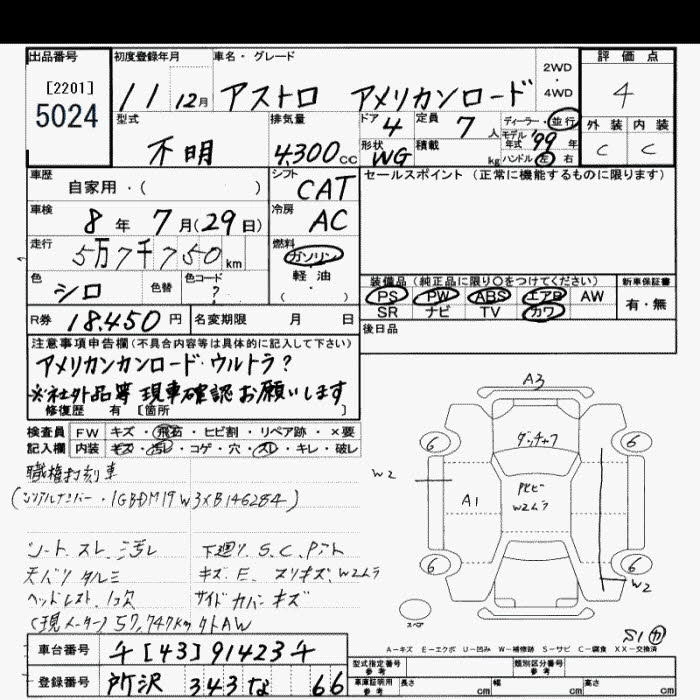 出品番号
[2201]
5024
初度登録年月
11 12月
車名・グレード
アストロ アメリカンロード
2WD
・
4WD
評価点
4
外装 内装
C C
型式
不明
排気量
4300cc
ドア
4
定員
7人
ディーラー・並行
モデル年式 '99年
形状
WG
積載 kg
ハンドル 左 右
車歴
自家用・( )
シフト
CAT
セールスポイント(正常に機能するものに限ります)
車検
8年 7月(29日)
冷房
AC
走行
5万7千750km
燃料
ガソリン
軽・油
( ・ )
色
シロ
色替
色コード
?
装備品(純正品に限り○をつけてください)
PS PW ABS エアB AW
SR ナビ TV カワ
新車保証書
有・無
R券 18.450円
名変期限 月 日
後日品
注意事項申告欄(不具合内容等は具体的に記入して下さい)
アメリカンカンロード・ウルトラ?
※社外品等 現車確認お願いします
修復歴 有 [箇所 ]
検査員 FW キズ・飛石・ヒビ割・リペア跡・×要
記入欄 内装 キズ・汚レ・コゲ・穴・スレ・キレ・破レ
職権打刻車
(シリアルナンバー・1GBDM19W3XB146284)
シート スレ、汚レ
下廻り S.C.Pント
天バリ タルミ
キズ、E、スリキズ、W2ムラ
ヘッドレスト 1コ欠
サイドカバーキズ
(現メーター)57,747km 外AW
A3
6 6
ダッチャフ
W2
A1
W2ムラ
6 6
W2
スペア
S1 カ
A-キズ E-エクボ U-凹み W-補修跡 S-サビ C-腐食 XX-交換済
車台番号 千[43]91423千
登録番号 所沢 343 な 66
型式指定番号
参考
類別区分番号
参考
車庫証明用
参考
長さ cm
幅 cm
高さ cm